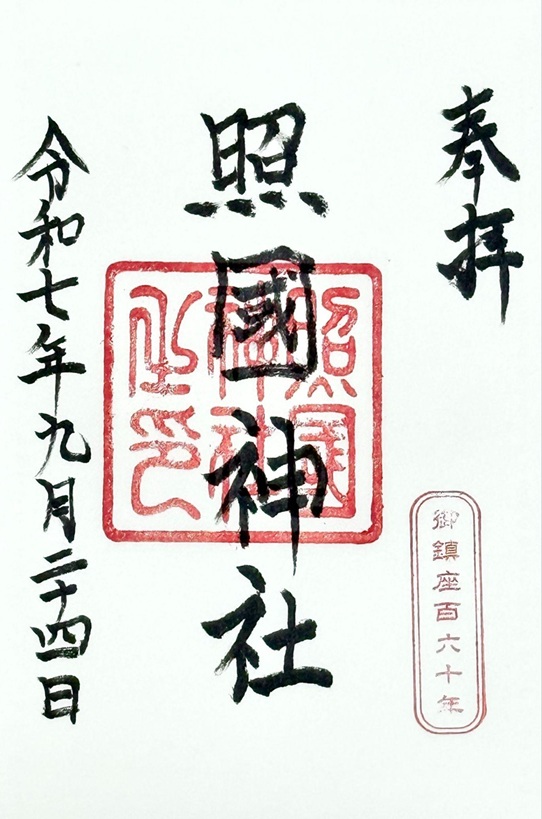 奉拝
照國神社
照國
神社
之印
御鎮座百六十年
令和七年九月二十四日